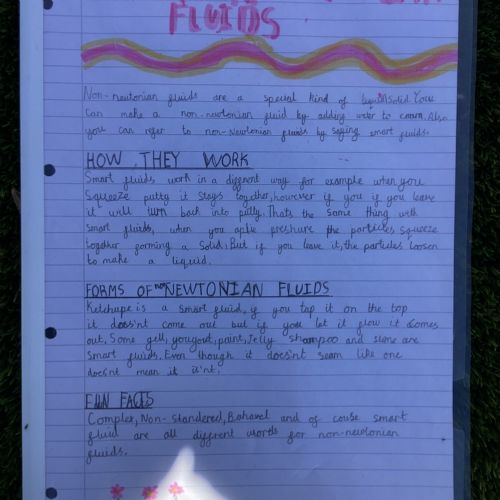 FLUIDS
Non-newtonian fluids are a special kind of liquid/solid. You
can make a non-newtonian fluid by adding water to corn. Also
you can refer to non-Newtonian fluids by saying smart fluids.
HOW THEY WORK
Smart fluids work in a diffrent way for example when you
squeeze putty it stays together, however if you if you leave
it will turn back into putty. Thats the same thing with
smart fluids, when you aplie preshure the particles squeeze
together forming a solid, But if you leave it, the particles loosen
to make a liquid.
FORMS OF non NEWTONIAN FLUIDS
Ketchupe is a smart fluid, if you tap it on the top
it does'nt come out but if you let it flow it comes
out. Some gell, yougout, paint, Jelly shampoo and slime are
smart fluids. Even though it does'nt seam like one
does'nt mean it is'nt!
FUN FACTS
Complex, Non-standered, and of couse smart
fluid are all diffrent words for non-newtonian
fluids.